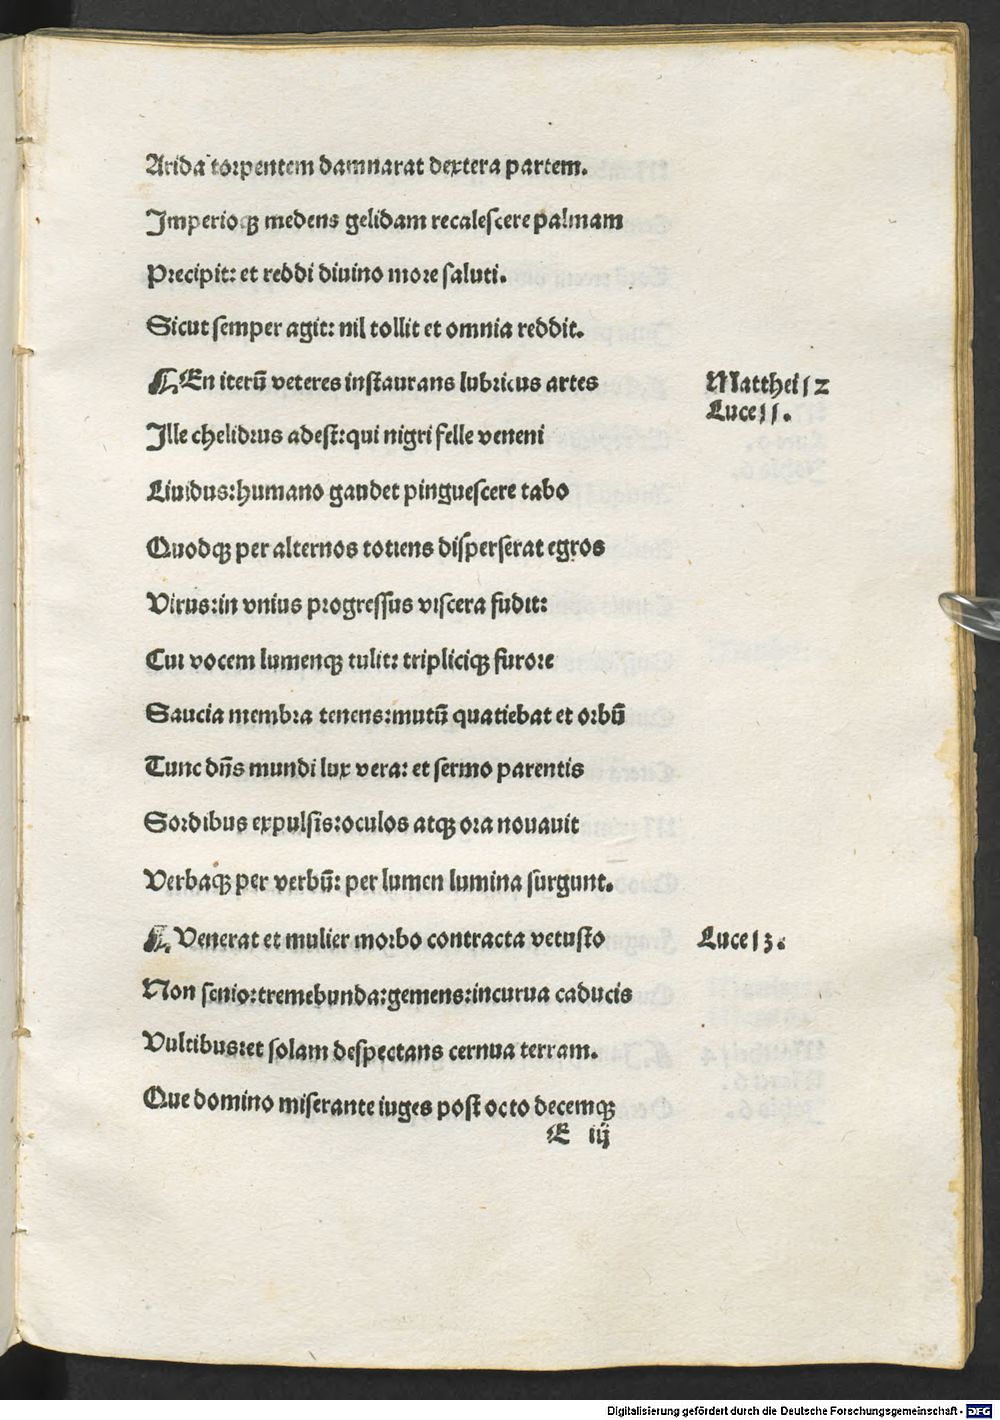 Arida torpentem damnarat dextera partem.
Imperioqꝫ medens gelidam recalescere palmam
Precipit: et reddi diuino more saluti.
Sicut semper agit: nil tollit et omnia reddit.
¶ En iterū veteres instaurans lubricus artes
Matthei 12
Luce 11.
Ille chelidrus adest: qui nigri felle veneni
Liuidus: humano gaudet pinguescere tabo
Quodqꝫ per alternos totiens disperserat egros
Virus: in vnius progressus viscera fudit:
Cui vocem lumenqꝫ tulit: tripliciqꝫ furore
Saucia membra tenens: mutū quatiebat et orbū
Tunc dn̄s mundi lux vera: et sermo parentis
Sordibus expulsis: oculos atqꝫ ora nouauit
Verbaqꝫ per verbū: per lumen lumina surgunt.
¶ Venerat et mulier morbo contracta vetusto
Luce 13.
Non senio: tremebunda: gemens: incurua caducis
Vultibus: et solam despectans cernua terram.
Que domino miserante iuges post octo decemqꝫ
E iij
Digitalisierung gefördert durch die Deutsche Forschungsgemeinschaft - DFG